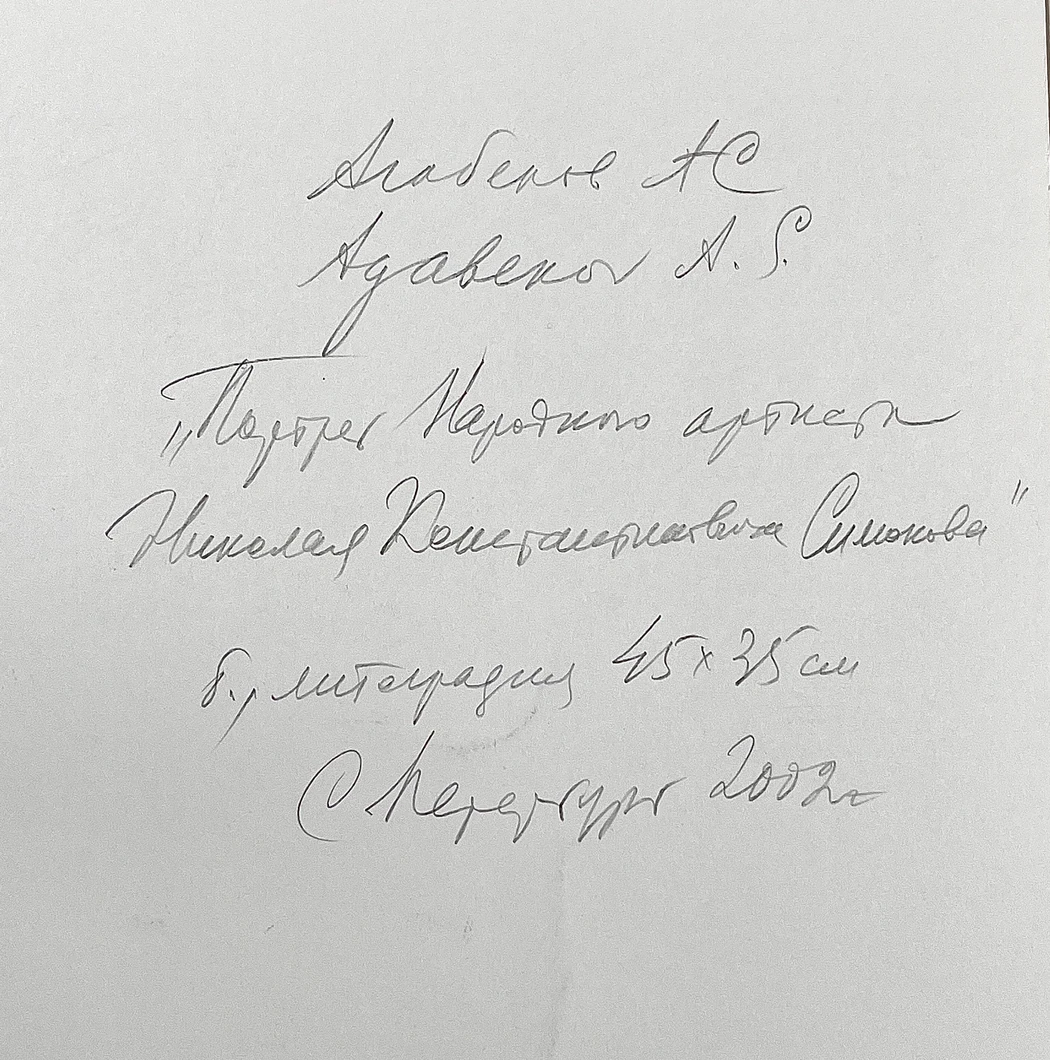 Агабеков АС
Agabekov A. S.
„Портрет Народного артиста
Николая Константиновича Симонова"
б., литография 45х35 см
С Петербург 2002г